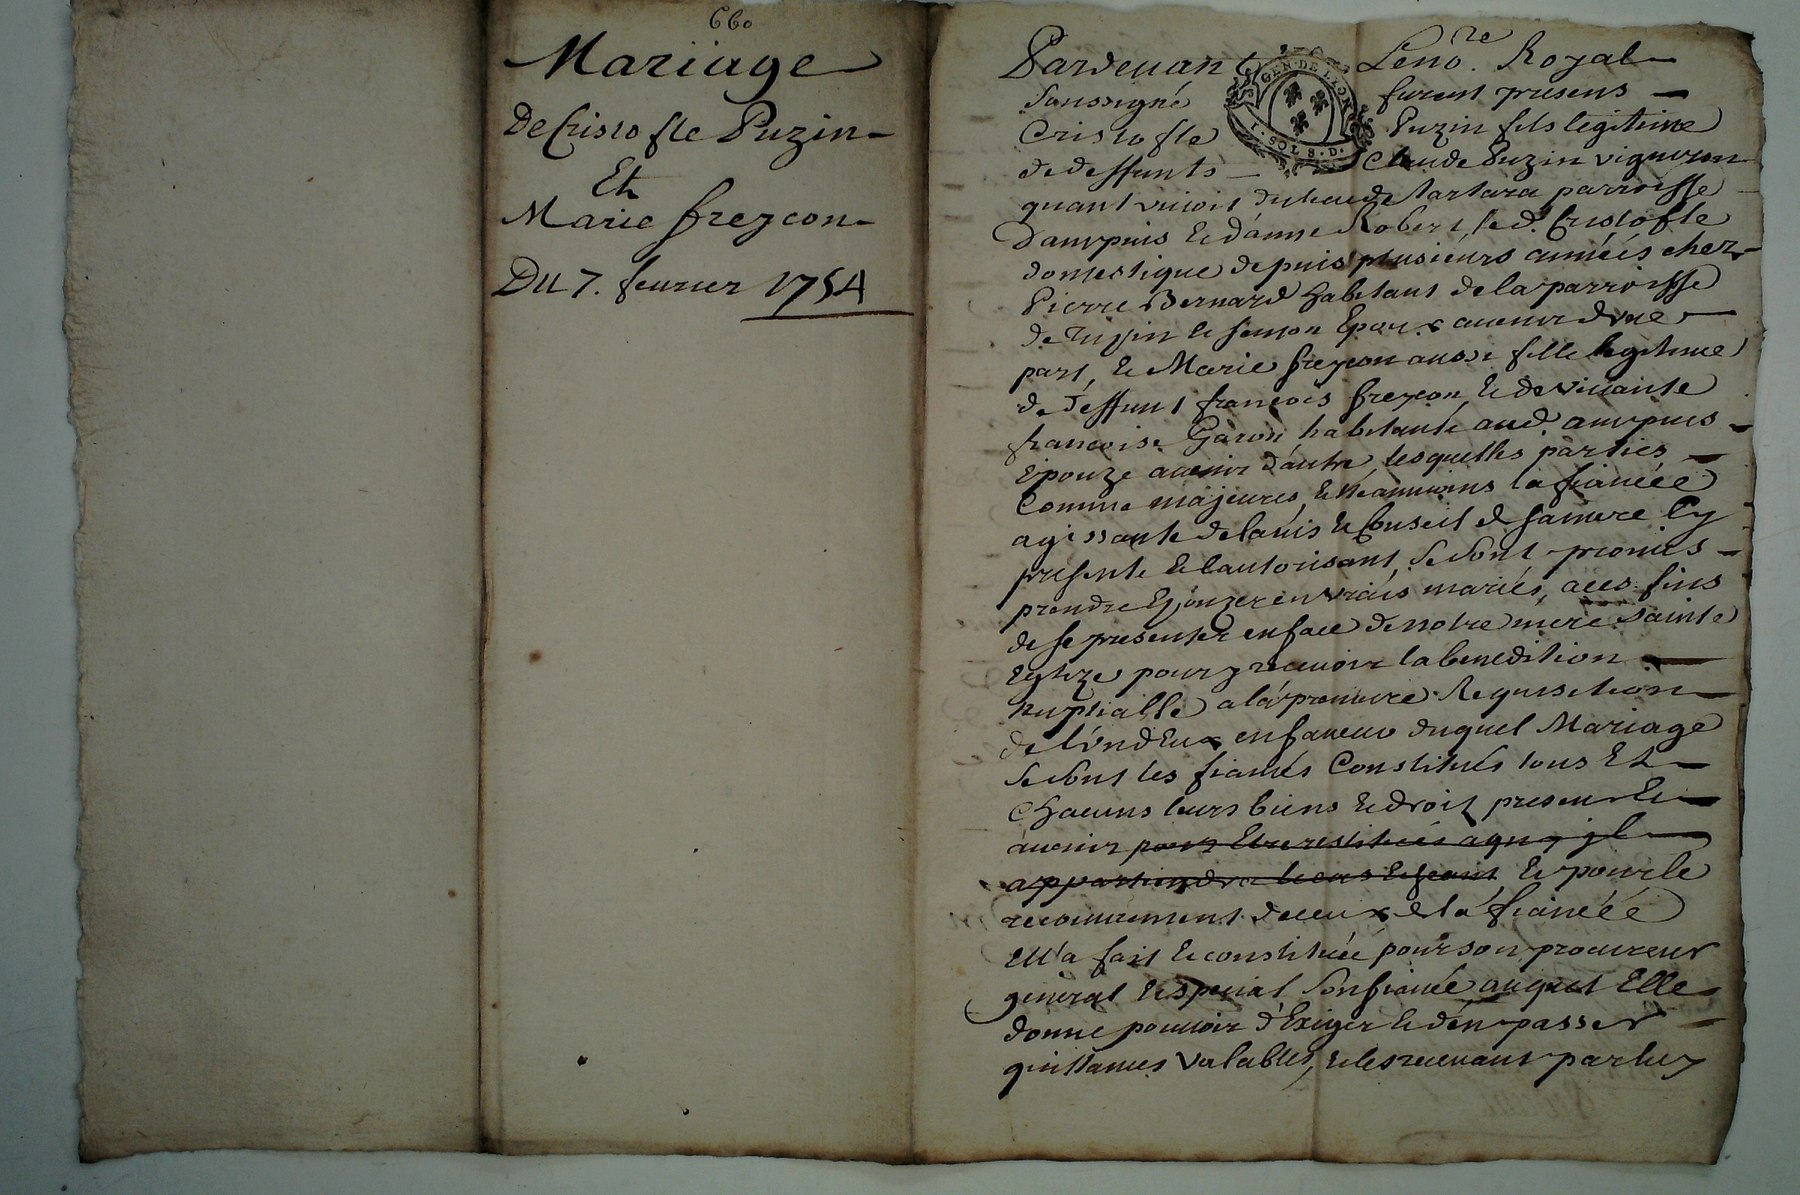 660
Mariage
De Cristofle Puzin
Et
Marie freycon
Du 7. feurier 1754
GEN. DE LYON
1. SOL 8. D.
Pardeuant Le no.re Royal
soussigné furent presens
Cristofle Puzin fils legitime
de deffunts Claude Puzin vigneron
quant viuoit du lieu de tartara parroisse
d'ampuis et d'anne Robert, led. Cristofle
domestique depuis plusieurs années chez
Pierre Bernard habitant de la parroisse
de Tuppin et semon Epoux auenir d'vne
part, et Marie freycon aussi fille legitime
de deffunt françois freycon et de viuante
francoise Garon habitante aud. ampuis
Epouze auenir d'autre, lesquelles parties
comme majeures, et neanmoins la fiancéé
agissante de lauis et Conseil de sa mere Cy
presente et l'autorisant, se sont promis
prendre Epouzer en vrais mariés, a ces fins
de se presenter en face de notre mere sainte
Eglize pour y receuoir la benedition
nuptialle a la premiere Requisition
de l'un d'Eux en faueur duquel Mariage
se sont les fiancés Constitués tous Et
Chacuns leurs biens et droits presens et
auenir pour Etre restitués a qui jl
appartiendra le cas Echeant, et pour le
recouurement de ceux de la fiancéé
Ell'a fait et constitué pour son procureur
general et special son fiancé auquel Elle
donne pouuoir d'Exiger et d'en passer
quittances valables, et les receuant par luy